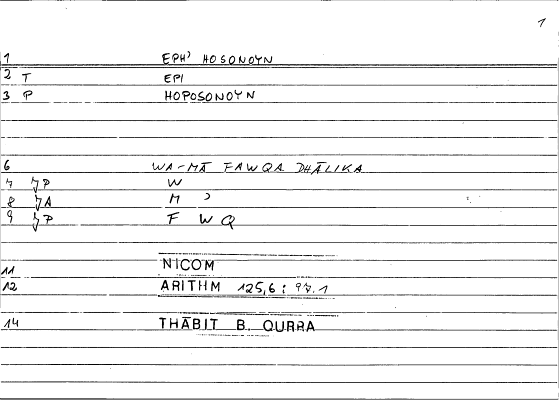 1
1 EPH' HOSONOYN
2 T EPI
3 P HOPOSONOYN
6 WA-MĀ FAWQA DHĀLIKA
7 P W
8 A M ʾ
9 P F W Q
11 NICOM
12 ARITHM 125,6 :
14 THĀBIT B. QURRA